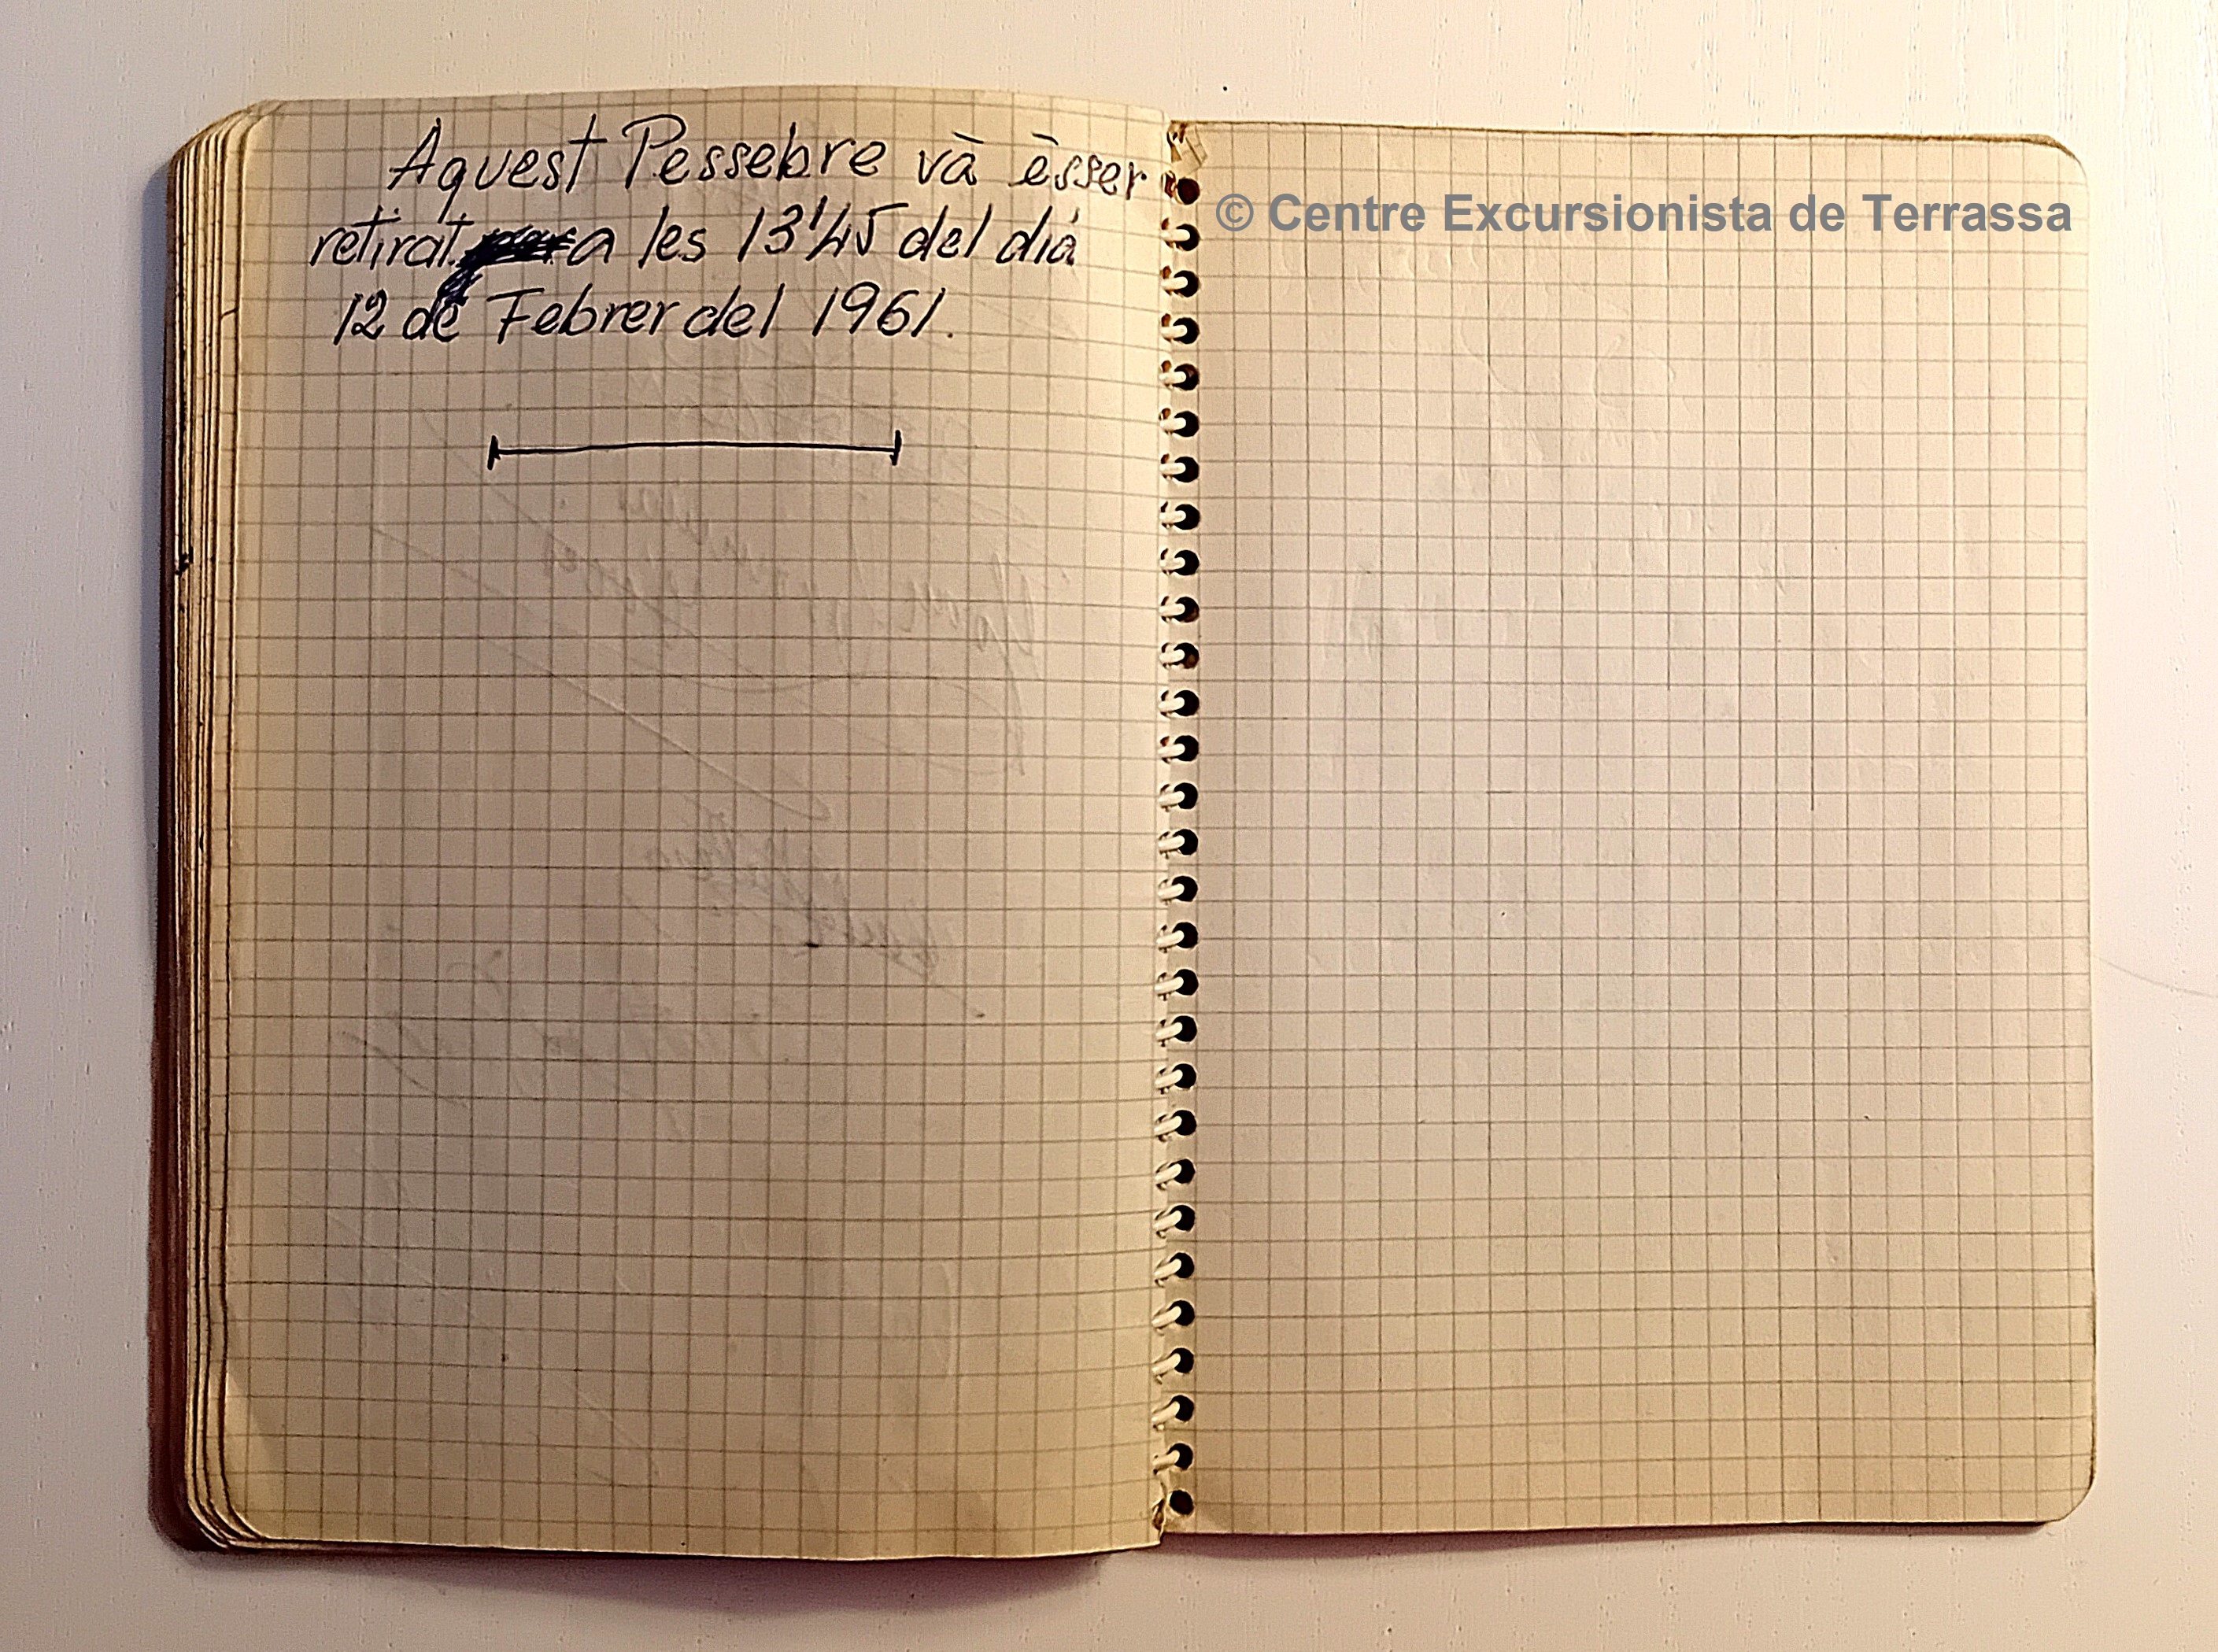 Aquest Pessebre và èsser
retirat a les 13'45 del dia
12 de Febrer del 1961.
© Centre Excursionista de Terrassa